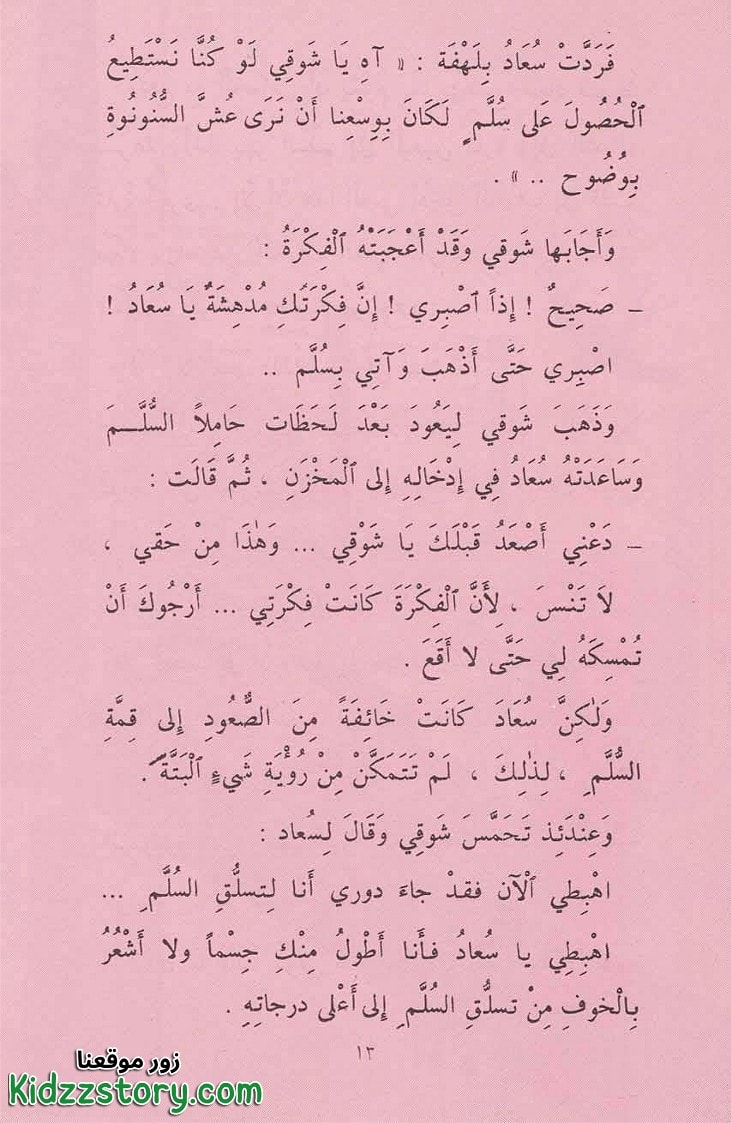 فَرَدَّتْ سُعَادُ بِلَهْفَة : « آهِ يَا شَوقِي لَوْ كُنَّا نَسْتَطِيعُ
ٱلْحُصُولَ عَلى سُلَّمٍ لَكَانَ بِوِسْعِنا أَنْ نَرَى عُشَّ السُّنُونُوةِ
بِوُضُوح .. » .
وَأَجَابَها شَوقي وَقَدْ أَعْجَبَتْهُ ٱلْفِكْرَةُ :
– صَحِيحٌ ! إِذاً ٱصْبِرِي ! إِنَّ فِكْرَتَكِ مُدْهِشَةٌ يَا سُعَادُ !
اصْبِرِي حَتَّى أَذْهَبَ وَآتِي بِسُلَّم ..
وَذَهَبَ شَوقي لِيَعُودَ بَعْدَ لَحَظَات حَامِلاً السُّلَّــمَ
وَسَاعَدَتْهُ سُعَادُ فِي إِدْخَالِهِ إِلى ٱلْمَخْزَنِ ، ثُمَّ قَالَت :
– دَعْنِي أَصْعَدُ قَبْلَكَ يَا شَوْقِي ... وَهٰذَا مِنْ حَقي ،
لاَ تَنْسَ ، لِأَنَّ ٱلْفِكْرَةَ كَانَتْ فِكْرَتِي ... أَرْجُوكَ أَنْ
تُمْسِكَهُ لِي حَتَّى لا أَقَعَ .
وَلٰكِنَّ سُعَادَ كَانَتْ خَائِفَةً مِنَ الصُّعُودِ إِلى قِمَّةِ
السُّلَّمِ ، لِذٰلِكَ ، لَمْ تَتَمَكَّنْ مِنْ رُؤْيَةِ شَيءٍ ٱلْبَتَّةَ .
وَعِنْدَئِذ تَحَمَّسَ شَوقِي وَقَالَ لِسُعاد :
اهْبِطي ٱلْآن فقدْ جاءَ دوري أَنا لِتسلُّقِ السُلَّمِ ...
اهْبِطِي يا سُعادُ فأَنا أَطْولُ مِنْكِ جِسْماً ولا أَشْعُرُ
بِالْخوفِ مِنْ تسلُّقِ السُلَّمِ إِلى أَعْلى درجاتِهِ .
١٣
زور موقعنا
Kidzzstory.com